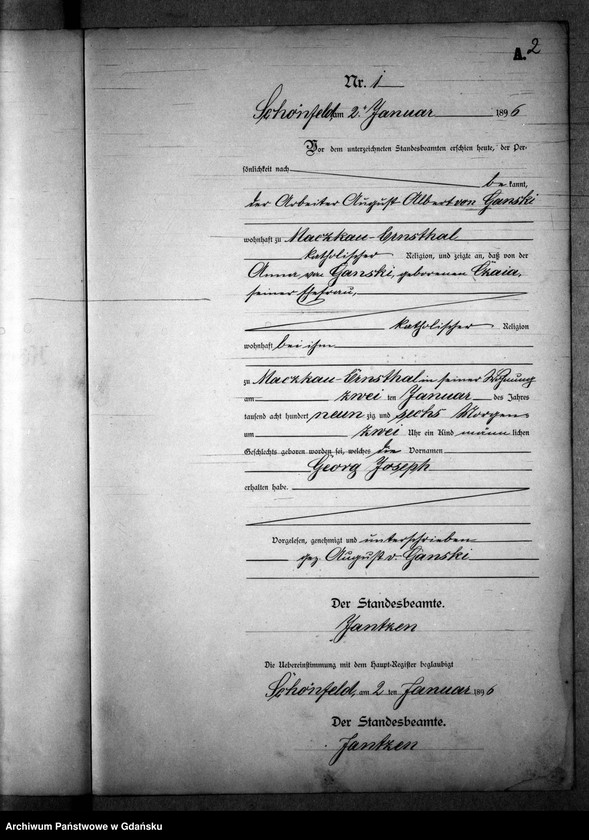 A. 2
Nr. 1
Schönfeld, am 2. Januar 1896
Vor dem unterzeichneten Standesbeamten erschien heute, der Per-
sönlichkeit nach
be kannt,
der Arbeiter August Albert von Ganski
wohnhaft zu Maczkau-Ernsthal
katholischer Religion, und zeigte an, daß von der
Anna von Ganski, geborenen Czaia,
seiner Ehefrau,
katholischer Religion
wohnhaft bei ihm
zu Maczkau-Ernsthal in seiner Wohnung
am zwei ten Januar des Jahres
tausend acht hundert neun zig und sechs Morgens
um zwei Uhr ein Kind männ lichen
Geschlechts geboren worden sei, welches die Vornamen
Georg Joseph
erhalten habe.
Vorgelesen, genehmigt und unterschrieben
gez. August v. Ganski
Der Standesbeamte.
Jantzen
Die Uebereinstimmung mit dem Haupt-Register beglaubigt
Schönfeld, am 2 ten Januar 1896
Der Standesbeamte.
Jantzen
Archiwum Państwowe w Gdańsku